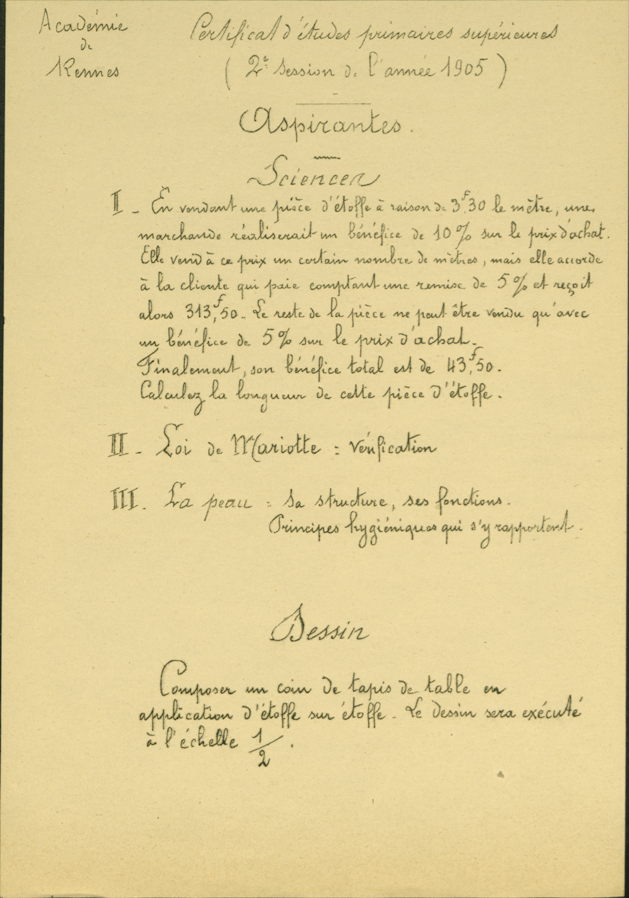 Académie
de
Rennes
Certificat d'études primaires supérieures
(2e Session de l'année 1905)
Aspirantes.
Sciences
I - En vendant une pièce d'étoffe à raison de 3f,30 le mètre, une
marchande réaliserait un bénéfice de 10% sur le prix d'achat.
Elle vend à ce prix un certain nombre de mètres, mais elle accorde
à la cliente qui paie comptant une remise de 5% et reçoit
alors 313f,50. Le reste de la pièce ne peut être vendu qu'avec
un bénéfice de 5% sur le prix d'achat.
Finalement, son bénéfice total est de 43f,50.
Calculez la longueur de cette pièce d'étoffe.
II - Loi de Mariotte = Vérification
III. La peau = Sa structure, ses fonctions.
Principes hygiéniques qui s'y rapportent.
Dessin
Composer un coin de tapis de table en
application d'étoffe sur étoffe. Le dessin sera exécuté
à l'échelle 1/2.